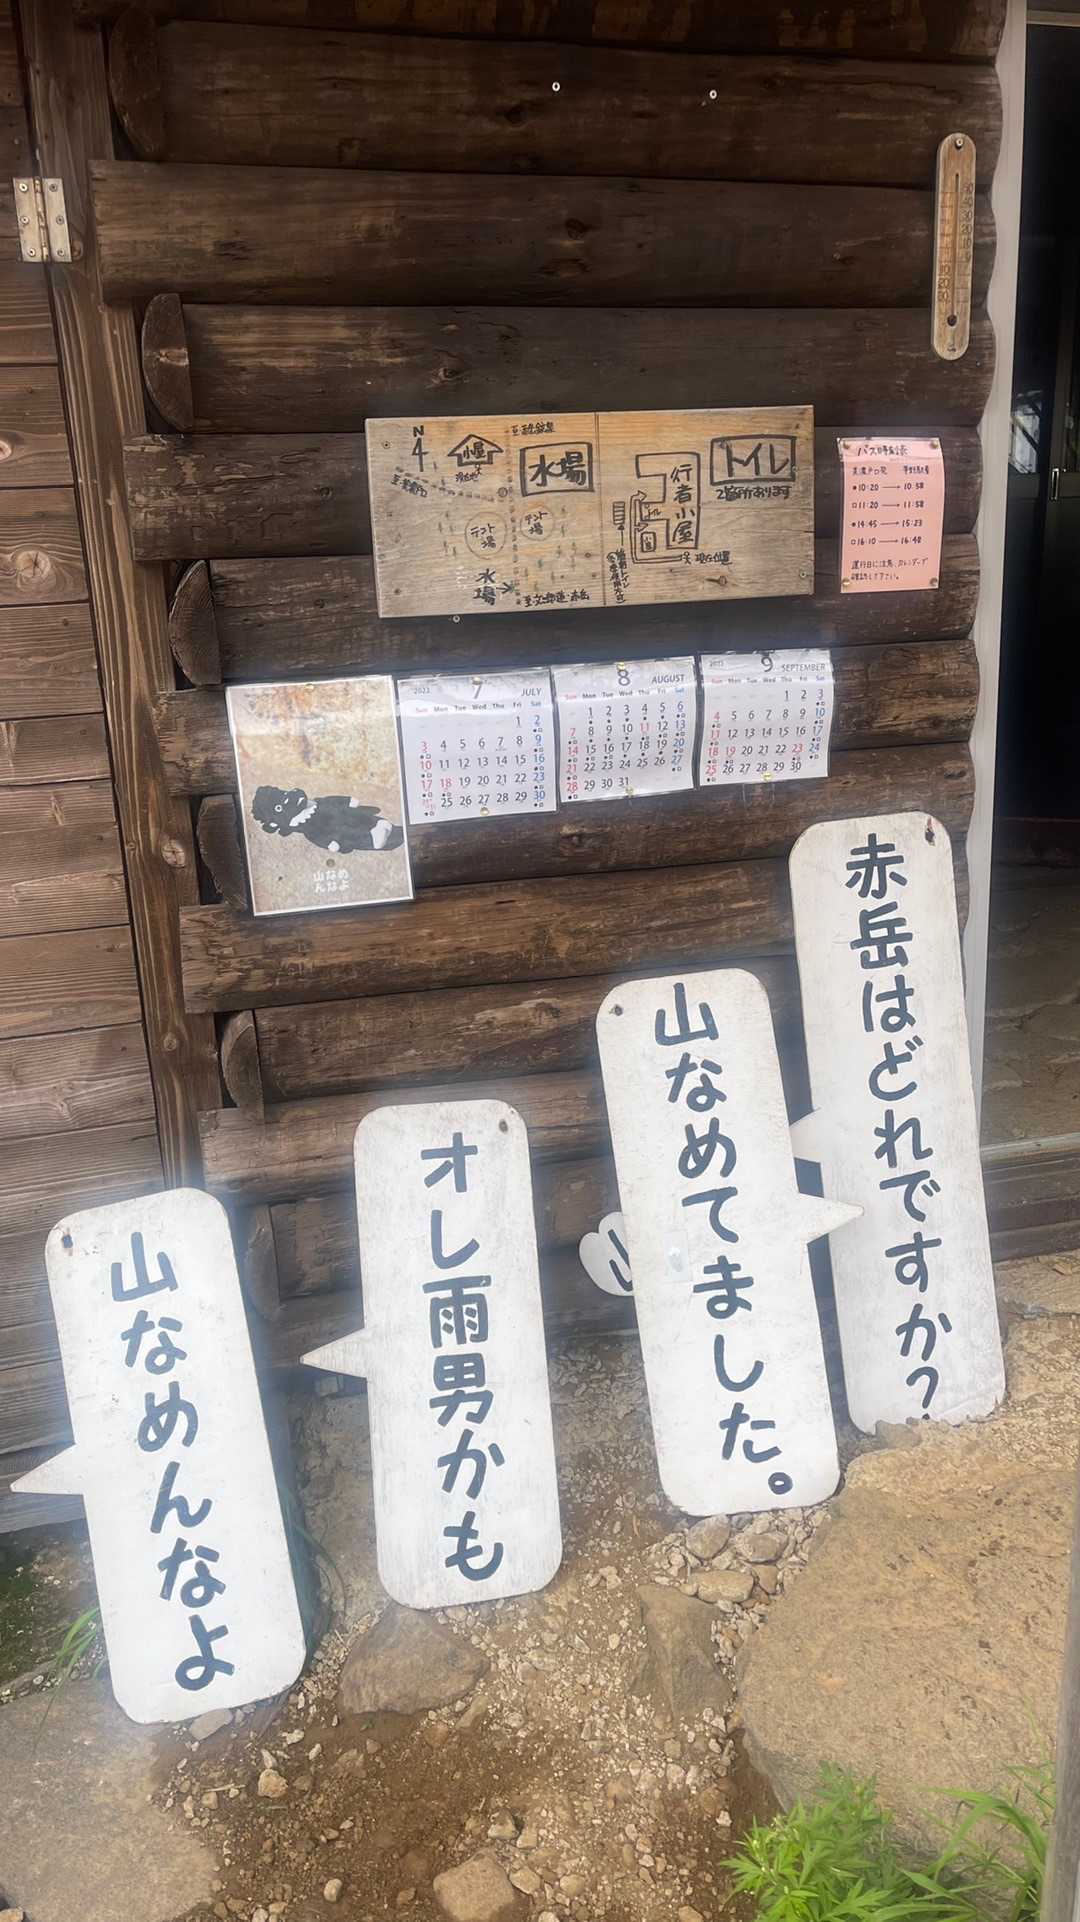 N
4
小屋
現在地
至硫黄岳
水場
テント場
テント場
水場
至文三郎道・赤岳
トイレ
2箇所あります
行者小屋
現在位置
バス時刻表
美濃戸口発 茅野駅着
●10:20 → 10:58
□11:20 → 11:58
●14:45 → 15:23
□16:10 → 16:48
運行日に注意。カレンダーで
確認して下さい。
2022 7 JULY
Sun Mon Tue Wed Thu Fri Sat
1 2
3 4 5 6 7 8 9
10 11 12 13 14 15 16
17 18 19 20 21 22 23
24/31 25 26 27 28 29 30
8 AUGUST
Sun Mon Tue Wed Thu Fri Sat
1 2 3 4 5 6
7 8 9 10 11 12 13
14 15 16 17 18 19 20
21 22 23 24 25 26 27
28 29 30 31
2022 9 SEPTEMBER
Sun Mon Tue Wed Thu Fri Sat
1 2 3
4 5 6 7 8 9 10
11 12 13 14 15 16 17
18 19 20 21 22 23 24
25 26 27 28 29 30
山なめ
んなよ
赤岳はどれですか?
山なめてました。
オレ雨男かも
山なめんなよ